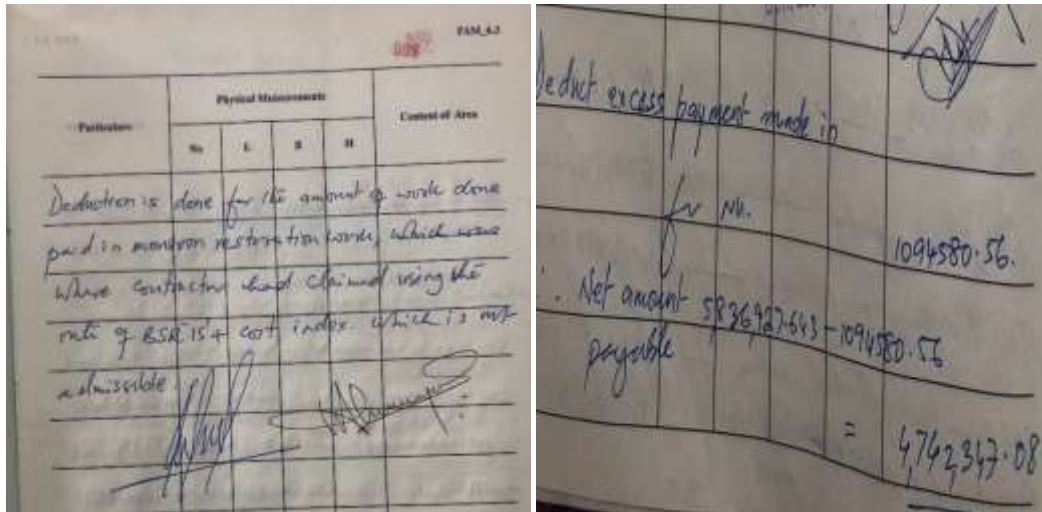 PAM_4.3
Physical Measurements
Particulars
Content of Area
No L B H
Deduction is done for the amount of work done
paid in monsoon restoration work, which were
where contractor had claimed using the
rate of BSR 15 + cost index. which is not
admissible
Deduct excess payment made in
1094580.56.
Net amount 5836927.643 - 1094580.56
payable
= 4,742,347.08